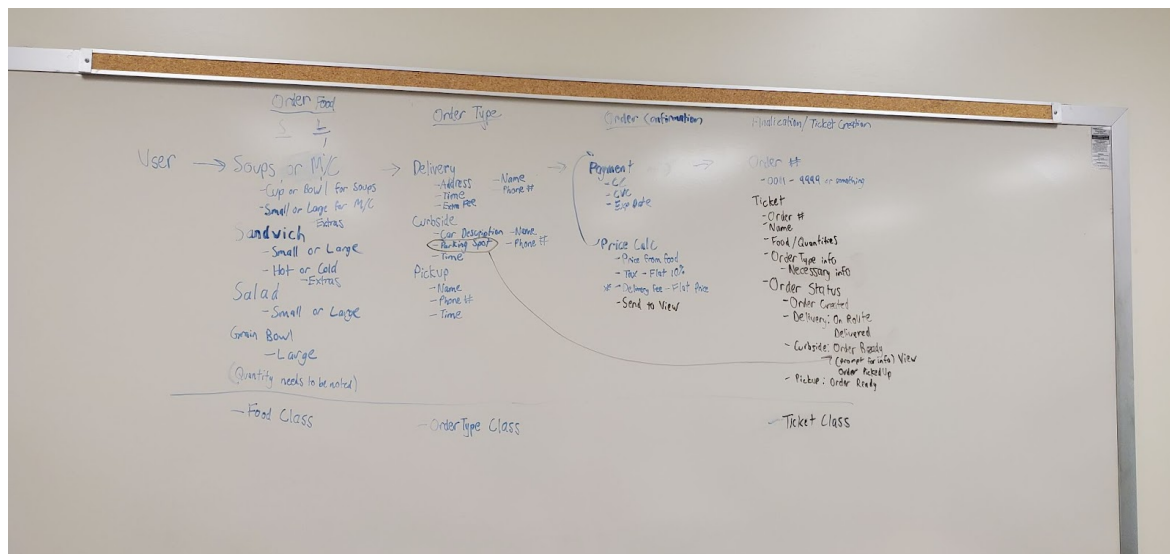 Order Food
S L
User → Soups or M/C →
- Cup or Bowl for Soups
- Small or Large for M/C
Extras
Sandwich
- Small or Large
- Hot or Cold
- Extras
Salad
- Small or Large
Grain Bowl
- Large
(Quantity needs to be noted)
- Food Class
Order Type
Delivery →
- Address - Name
- Time - Phone #
- Extra Fee
Curbside
- Car Description - Name
- Parking Spot - Phone #
- Time
Pickup
- Name
- Phone #
- Time
- Order Type Class
Order Confirmation
Payment →
- CC
- CVC
- Exp Date
Price Calc
- Price from food
- Tax - Flat 10%
* - Delivery Fee - Flat Price
- Send to View
/Ticket Creation
Order #
- 0011 - 9999 or something
Ticket
- Order #
- Name
- Food/Quantities
- Order Type info
- Necessary info
- Order Status
- Order Created
- Delivery: On Route
Delivered
- Curbside: Order Ready
→ (prompt for info) View
Order Picked Up
- Pickup: Order Ready
- Ticket Class